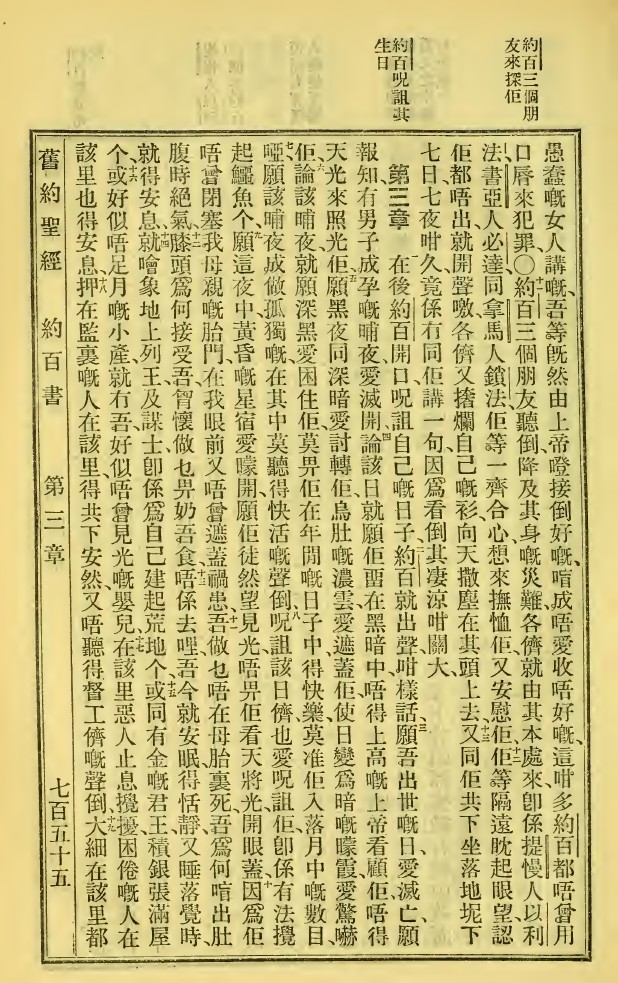 約百三個朋
友來探佢
約百呪詛其
生日
愚蠢嘅女人講嘅、吾等既然由上帝𢭃接倒好嘅、喑成唔愛收唔好嘅、這咁多約百都唔曾用
口脣來犯罪、〇十一約百三個朋友聽倒降及其身嘅災難各儕就由其本處來卽係提慢人以利
法書亞人必達同拿馬人鎖法佢等一齊合心想來撫恤佢又安慰佢、十二佢等隔遠眈起眼望認
佢都唔出就開聲噭各儕又撦爛自己嘅衫向天撒塵在其頭上去、十三又同佢共下坐落地坭下
七日七夜咁久竟係冇同佢講一句因爲看倒其凄涼咁關大、
第三章 一在後約百開口呪詛自己嘅日子、二約百就出聲咁樣話、三願吾出世嘅日愛滅亡、願
報知有男子成孕嘅晡夜愛滅開、四論該日就願佢䀄在黑暗中、唔得上高嘅上帝看顧佢唔得
天光來照光佢、五願黑夜同深暗愛討轉佢烏肚嘅濃雲愛遮蓋佢使日變爲暗嘅曚霞愛驚嚇
佢、六論該晡夜就願深黑愛困住佢莫畀佢在年間嘅日子中得快樂莫准佢入落月中嘅數目、
七啞願該晡夜成做孤獨嘅在其中莫聽得快活嘅聲倒、八呪詛該日儕也愛呪詛佢卽係有法攪
起鱷魚个、九願這夜中黃昏嘅星宿愛曚開願佢徒然望見光唔畀佢看天將光開眼蓋、十因爲佢
唔曾閉塞我母親嘅胎門、在我眼前又唔曾遮蓋禍患、十一吾做乜唔在母胎裏死、吾爲何喑出肚
腹時絕氣、十二膝頭爲何接受吾胷懷做乜畀奶吾食、十三唔係去哩、吾今就安眠得恬靜、又睡落覺時
就得安息、十四就噲象地上列王及謀士卽係爲自己建起荒地个、十五或同有金嘅君王積銀張滿屋
个、十六或好似唔足月嘅小產就冇吾、好似唔曾見光嘅嬰兒、十七在該里惡人止息攪擾困倦嘅人在
該里也得安息、十八押在監裏嘅人在該里、得共下安然、又唔聽得督工儕嘅聲倒、十九大細在該里都
舊約聖經 約百書 第三章 七百五十五